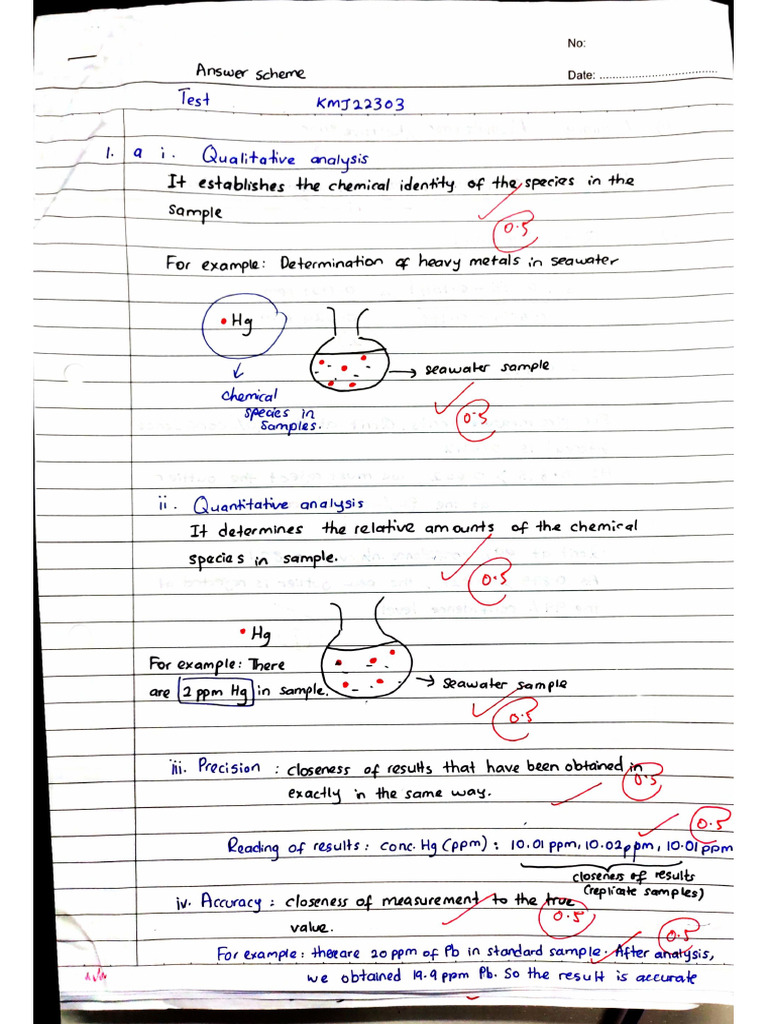 No:
Answer scheme
Date: ..................................
Test KMJ22303
1. a i. Qualitative analysis
It establishes the chemical identity of the species in the
sample
0.5
For example: Determination of heavy metals in seawater
Hg
seawater sample
chemical
species in
samples.
0.5
ii. Quantitative analysis
It determines the relative amounts of the chemical
species in sample.
0.5
Hg
For example: There
are 2 ppm Hg in sample.
seawater sample
0.5
iii. Precision : closeness of results that have been obtained in
0.5
exactly in the same way.
0.5
Reading of results : conc. Hg (ppm) : 10.01 ppm, 10.02 ppm, 10.01 ppm
closeness of results
(replicate samples)
iv. Accuracy : closeness of measurement to the true
0.5
value.
0.5
For example : there are 20 ppm of Pb in standard sample. After analysis,
we obtained 19.9 ppm Pb. So the result is accurate